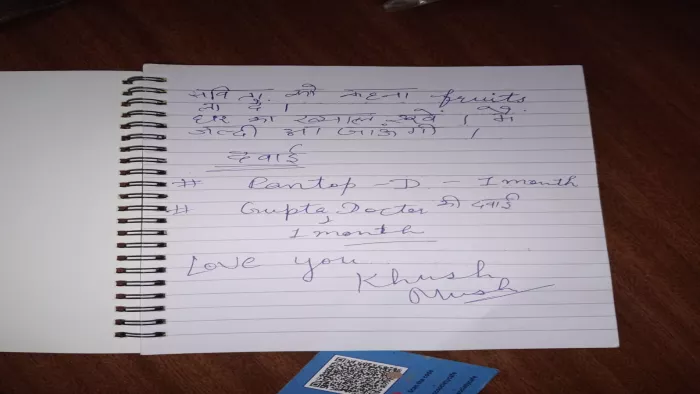 को कहना fruits
ला दे ।
घर का ख्याल रखें । मैं
जल्दी आ जाऊंगी ।
दवाई
# Pantop - D - 1 month
# Gupta Doctor की दवाई
1 month
Love you
Khush